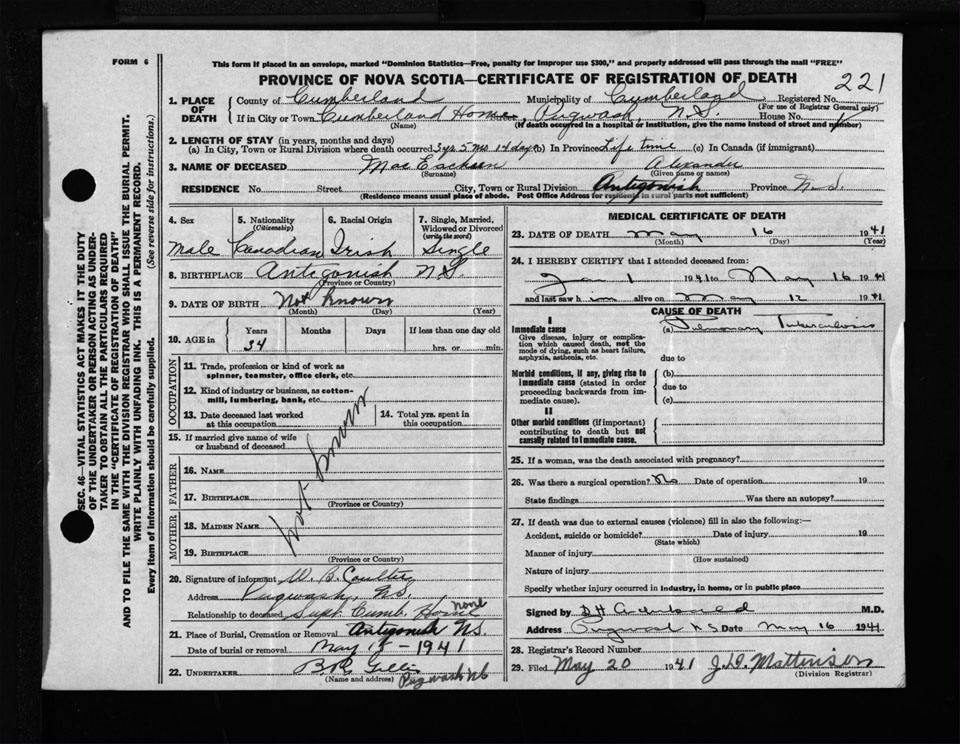 FORM 6
This form if placed in an envelope, marked "Dominion Statistics—Free, penalty for improper use $300," and properly addressed will pass through the mail "FREE"
PROVINCE OF NOVA SCOTIA—CERTIFICATE OF REGISTRATION OF DEATH
221
1. PLACE OF DEATH
County of Cumberland Municipality of Cumberland Registered No.
(For use of Registrar General only)
If in City or Town Cumberland Home Street, Pugwash, N.S. House No.
(Name) (If death occurred in a hospital or institution, give the name instead of street and number)
2. LENGTH OF STAY (in years, months and days)
(a) In City, Town or Rural Division where death occurred 3 yrs 5 mos 14 days (b) In Province Life time (c) In Canada (if immigrant)
3. NAME OF DECEASED Mac Eachern Alexander
(Surname) (Given name or names)
RESIDENCE No. Street City, Town or Rural Division Antigonish Province N.S.
(Residence means usual place of abode. Post Office Address for residents in rural parts not sufficient)
4. Sex 5. Nationality (Citizenship) 6. Racial Origin 7. Single, Married, Widowed or Divorced (write the word)
Male Canadian Irish Single
8. BIRTHPLACE Antigonish N.S.
(Province or Country)
9. DATE OF BIRTH Not Known
(Month) (Day) (Year)
10. AGE in Years Months Days If less than one day old
34 hrs. or min.
OCCUPATION
11. Trade, profession or kind of work as spinner, teamster, office clerk, etc.
12. Kind of industry or business, as cotton-mill, lumbering, bank, etc.
13. Date deceased last worked at this occupation
14. Total yrs. spent in this occupation
15. If married give name of wife or husband of deceased
FATHER
16. NAME
17. BIRTHPLACE
(Province or Country)
MOTHER
18. MAIDEN NAME
19. BIRTHPLACE
(Province or Country)
not known
20. Signature of informant W. S. Coulter
Address Pugwash, N.S.
Relationship to deceased Supt. Cumb. Home none
21. Place of Burial, Cremation or Removal Antigonish N.S.
Date of burial or removal May 1 — 1941
22. UNDERTAKER
(Name and address) Pugwash N.S.
MEDICAL CERTIFICATE OF DEATH
23. DATE OF DEATH May 16 1941
(Month) (Day) (Year)
24. I HEREBY CERTIFY that I attended deceased from:
Jan 1 1941 to May 16 1941
and last saw him alive on May 12 1941
CAUSE OF DEATH
I
Immediate cause (a) Pulmonary Tuberculosis
Give disease, injury or complication which caused death, not the mode of dying, such as heart failure, asphyxia, asthenia, etc.
due to
Morbid conditions, if any, giving rise to immediate cause (stated in order proceeding backwards from immediate cause).
(b)
due to
(c)
II
Other morbid conditions (if important) contributing to death but not causally related to immediate cause.
25. If a woman, was the death associated with pregnancy?
26. Was there a surgical operation? No Date of operation 19
State findings Was there an autopsy?
27. If death was due to external causes (violence) fill in also the following:—
Accident, suicide or homicide? Date of injury 19
(State which)
Manner of injury
(How sustained)
Nature of injury
Specify whether injury occurred in industry, in home, or in public place
Signed by M.D.
Address Pugwash N S Date May 16 1941
28. Registrar's Record Number
29. Filed May 20 1941 Mattinson
(Division Registrar)
SEC. 46—VITAL STATISTICS ACT MAKES IT THE DUTY
OF THE UNDERTAKER OR PERSON ACTING AS UNDER-
TAKER TO OBTAIN ALL THE PARTICULARS REQUIRED
IN THE "CERTIFICATE OF REGISTRATION OF DEATH"
AND TO FILE THE SAME WITH THE DIVISION REGISTRAR WHO SHALL ISSUE THE BURIAL PERMIT.
WRITE PLAINLY WITH UNFADING INK. THIS IS A PERMANENT RECORD.
Every item of information should be carefully supplied. (See reverse side for instructions.)